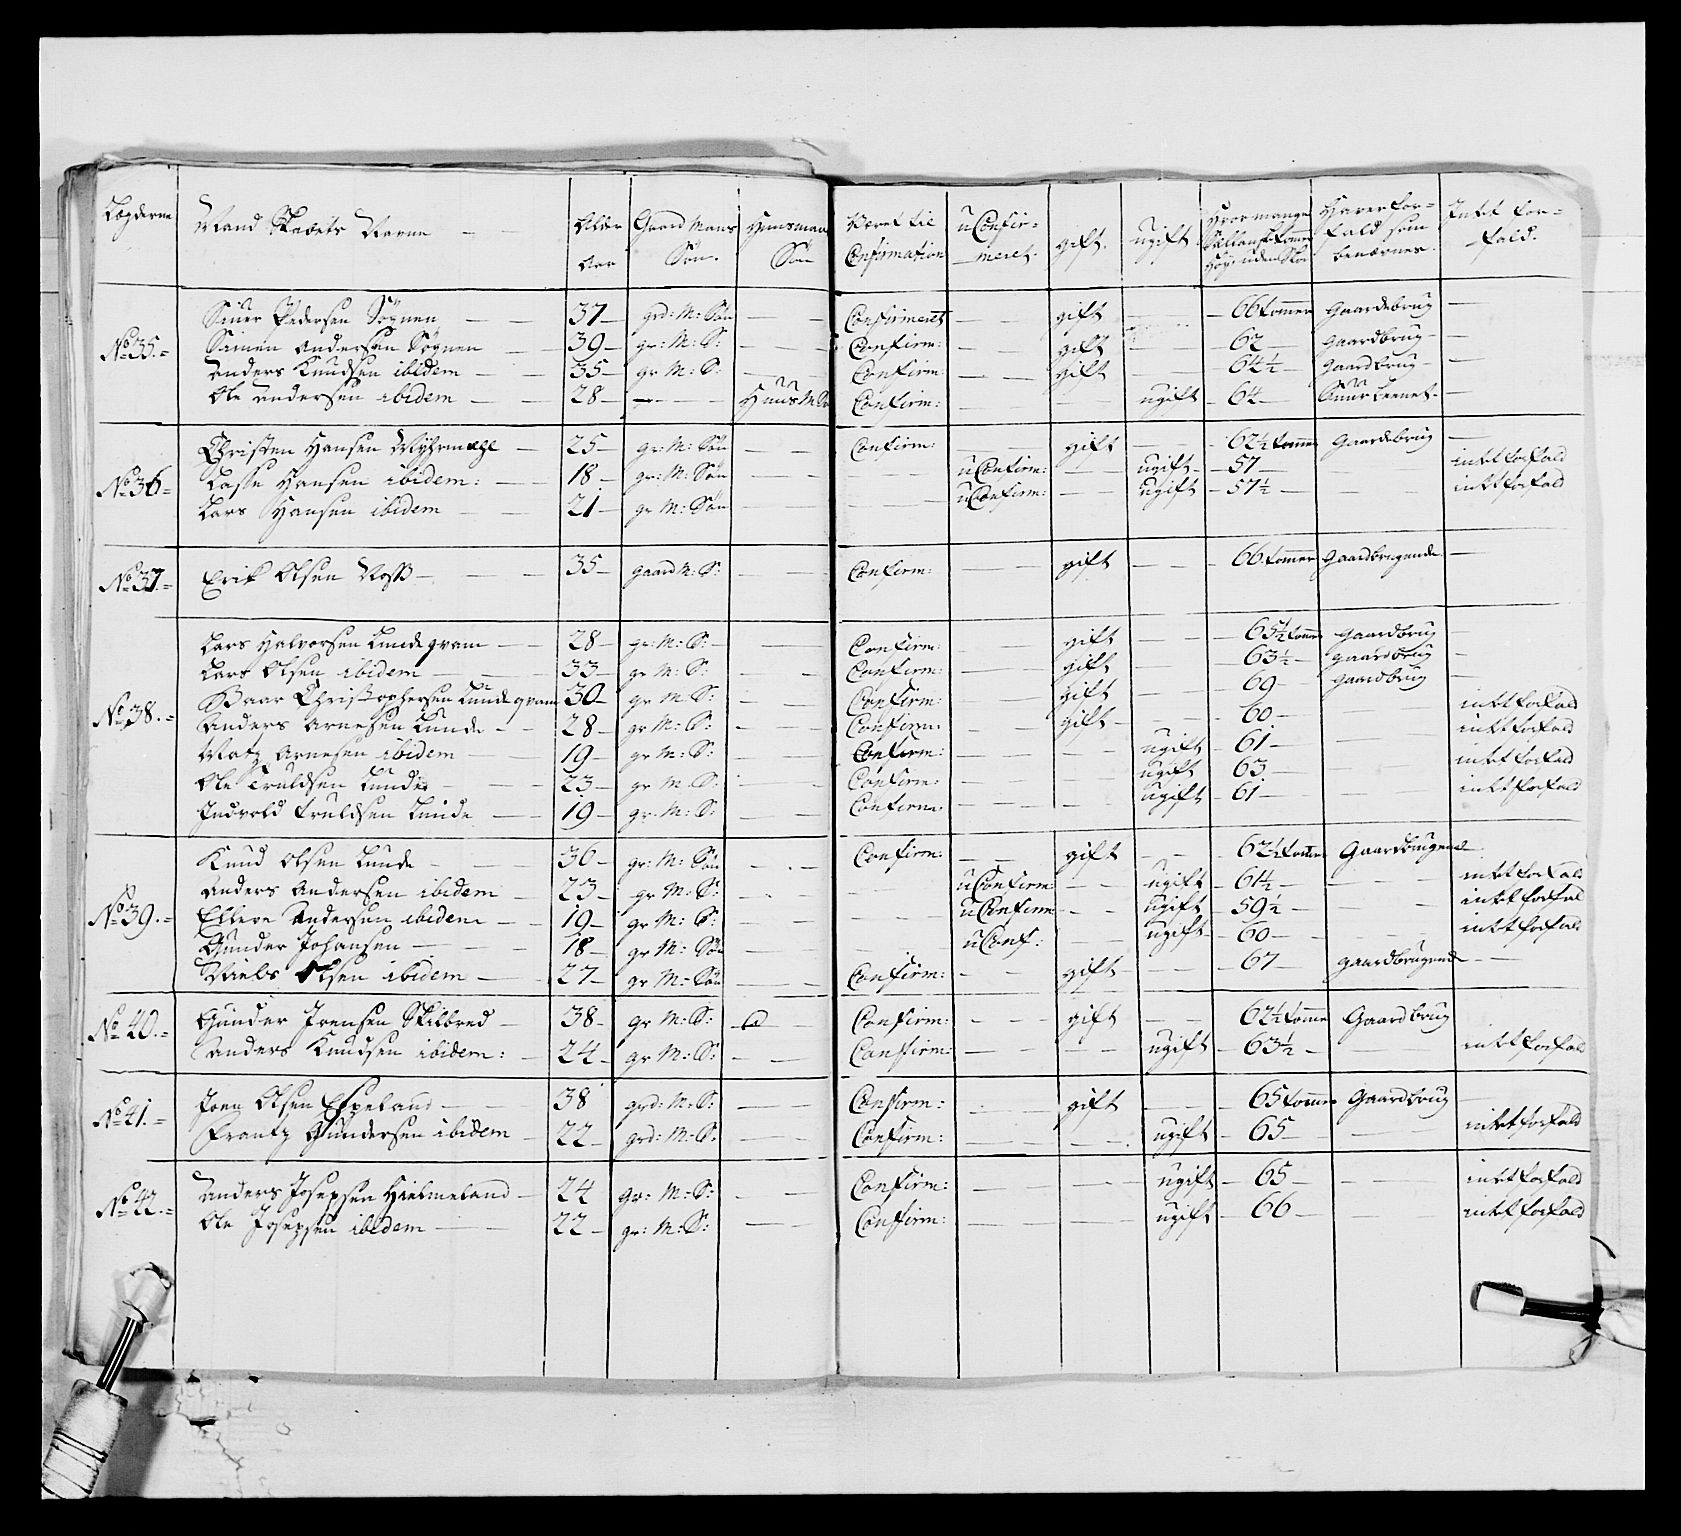 Lægderne Mand Skabets Navne Alder Aar Gaard Mans Søn. Huusmans Søn Været til Confirmation uConfir-meret. gift. ugift Hvor mange Sællansk tommer Høy uden Skoe Haver for-fald som benævnes. Intet for-fald.
No 35. Siver Pedersen Sögnen 37 grd: M: Sön Confirmeret gift 66 tommer Gaardebrug
Simen Andersen Sögnen 39 gr: M: S: Confirm: gift 62 gaardbrug
Anders Knudsen ibidem 35 gr M: S: Confirm: gift 64½ gaardbrug
Ole Andersen ibidem 28 Huus M Sön Confirm: ugift 64
No 36 Christen Hansen 25 gr: M: Sön Confirm: gift 62½ tommer Gaardebrug
Lasse Hansen ibidem: 18 gr: M: Sön uConfirm: ugift 57 intet forfald
Lars Hansen ibidem 21 gr M: Sön uConfirm: ugift 57½ intet forfald
No 37. Erik Olsen Noss 35 gaard M: S: Confirm: gift 66 tommer gaardbrugende
No 38. Lars Halvorsen Lundeqvam 28 gr: M: S: Confirm: gift 65½ tommer gaardbrug
Lars Olsen ibidem 33 gr M: S: Confirm: gift 63½ gaardbrug
Baar Christophersen Lundeqvam 30 gr M: S: Confirm: gift 69 gaardbrug
Anders Arnesen Lunde 28 gr M: S: Confirm: gift 60 intet forfald
Matz Arnesen ibidem 19 gr M: S: Confirm: ugift 61 intet forfald
Ole Truldsen Lunde 23 gr M: S: Confirm: ugift 63 intet forfald
Indvold Truldsen Lunde 19 gr: M: S: Confirm: ugift 61 intet forfald
No 39. Knud Olsen Lunde 36 gr: M: Sön Confirm: gift 62½ tommer Gaardbrugend
Anders Andersen ibidem 23 gr M: S: uConfirm ugift 61½ intet forfald
Ellere Andersen ibidem 19 gr M: S: uConfirm ugift 59½ intet forfald
Gunder Johansen 18 gr M: Sön uConf: ugift 60 intet forfald
Niels Olsen ibidem 27 gr M: Sön Confirm: gift 67 gaardbrugend
No 40. Gunder Joensen Skilbred 38 gr M: S: Confirm: gift 62½ tomme Gaardbrug
Anders Knudsen ibidem: 24 gr M: S: Confirm: ugift 63½ intet forfald
No 41. Joen Olsen Espeland 38 grd: M: S: Confirm: gift 65 tomme Gaardbrug
Frantz Gundersen ibidem 22 grd: M: S: Confirm: ugift 65 intet forfald
No 42. Anders Josepsen Hielmeland 24 gr: M: S: Confirm: ugift 65 intet forfald
Ole Josepsen ibidem 22 gr: M: S: Confirm: ugift 66 intet forfald